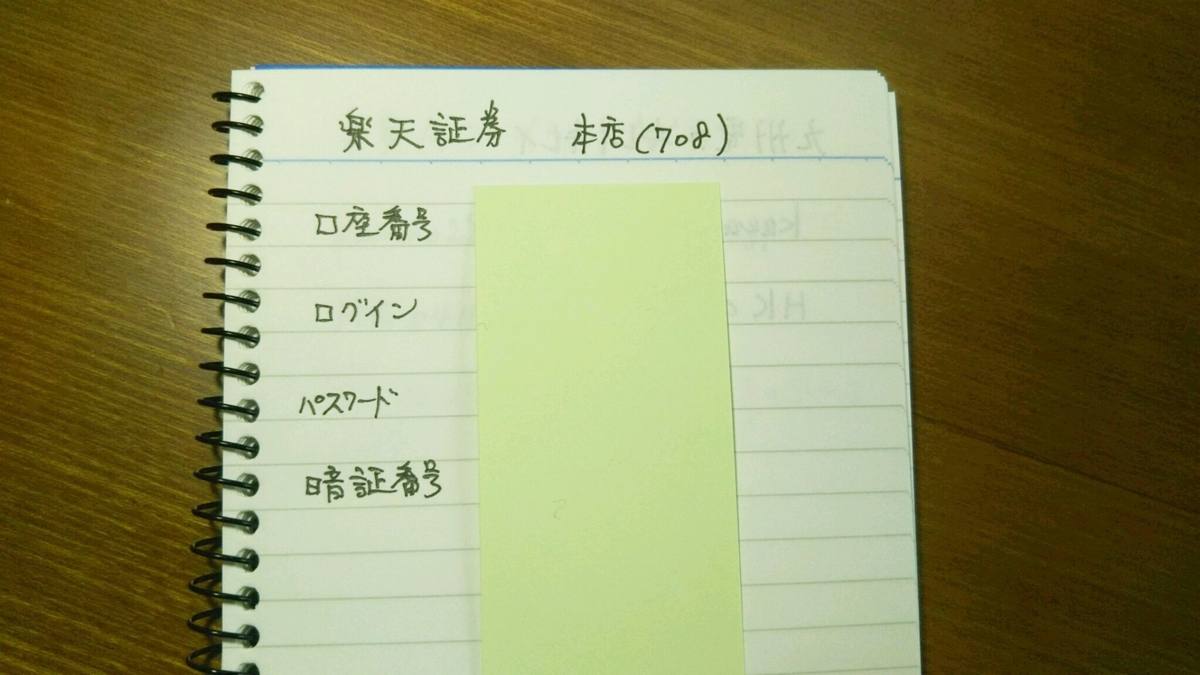 楽天証券 本店(708)
口座番号
ログイン
パスワード
暗証番号